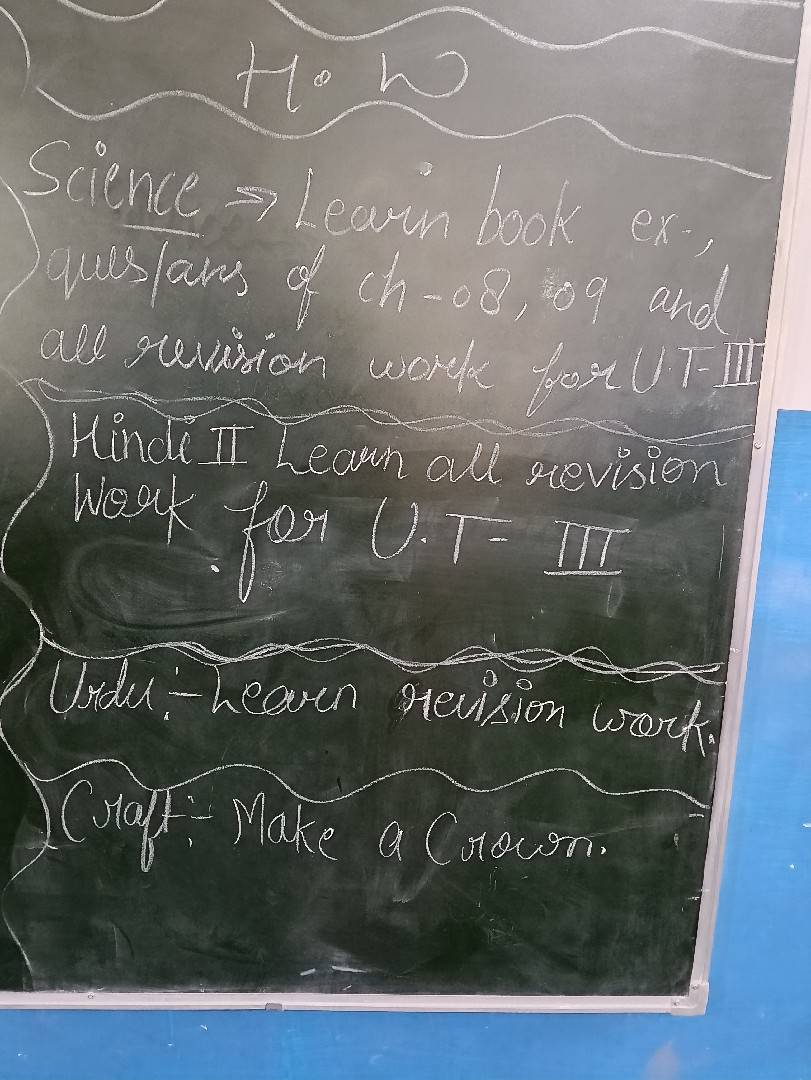 H. W
Science => Learn book ex-,
ques/ans of ch-08, 09 and
all revision work for U.T-III
Hindi II Learn all revision
Work for U.T- III
Urdu:- Learn revision work.
Craft:- Make a Crown.